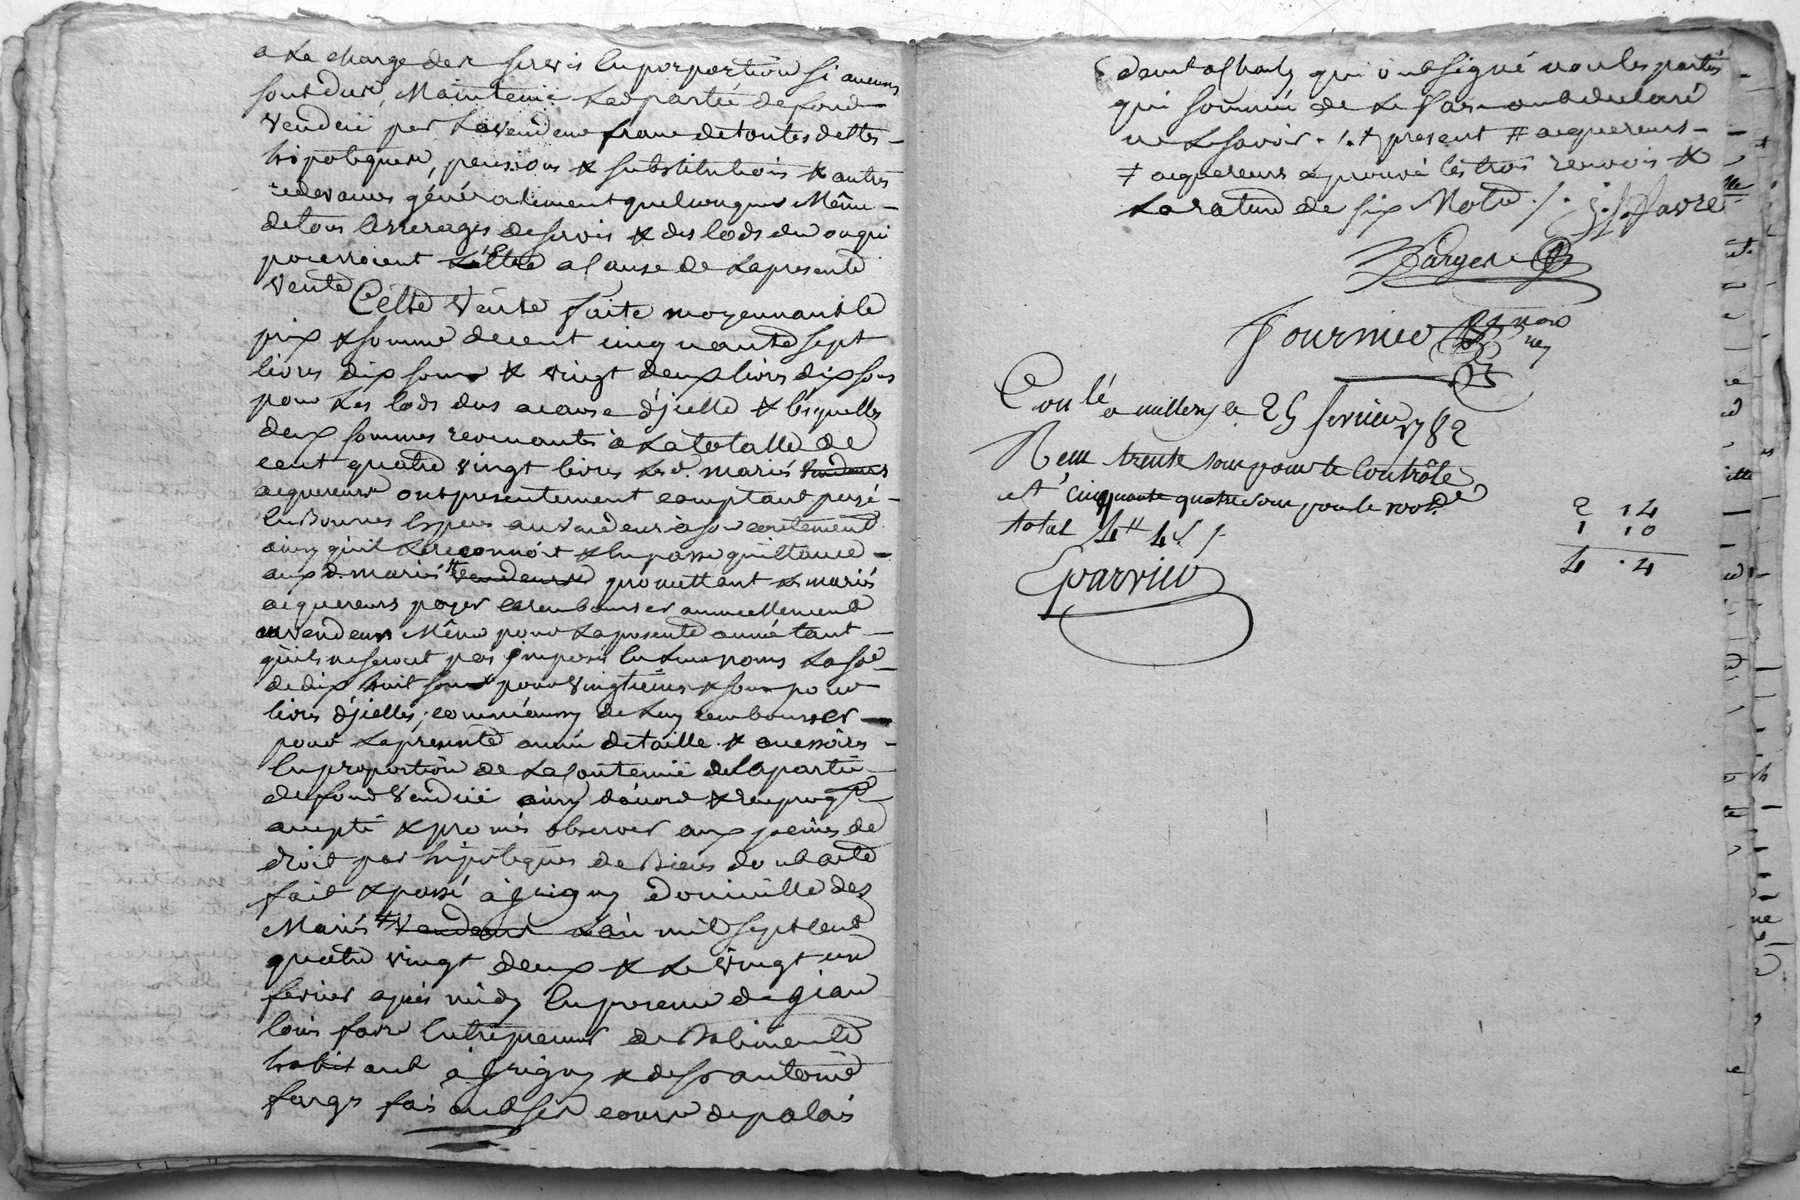 a La charge des servis En porportion si aucuns
sont dus, Maintenir Lad partie de fond
vendüe par Le vendeur franc de toutes dettes
hipoteques, pensions & substitutions & autres
redevances généralement quelconques Même
de tous Arrerages de servis & des lods du ou qui
pourroient L'être a Cause de La presente
vente
Cette vente faite moyennant le
prix & somme de cent cinquante sept
livres dix sous & vingt deux livres dix sous
pour Les lods dus a cause d'jcelle & lesquelles
deux sommes revenantes a La totalle de
cent quatre vingt livres Lesd. mariés vendeurs
acquereurs ont presentement comptant payé
En Bonnes Especes au vendeur à son contentement
ainsy qu'il Le reconnoit & En passe quittance
aux d. mariés # vendeurs promettant Les mariés
acquereurs payer & rembourser annuellement
au vendeur Même pour La presente année tant
qu'ils ne seront pas jmposés En Leurs noms La so.e
de dix huit sous pour vingtiemes & sous pour
livres d'jcelles, comm'aussy de Luy rembourser
pour La presente année de taille & accessoires
En proportion de La Contenüe de La partie
de fond vendüe ainsy d'accord &
accepté & promis observer aux peines de
droit par hipoteques de Biens dont acte
fait & passé à Grigny domicille des
Mariés # vendeurs L'an mil sept cent
quatre vingt deux & Le vingt un
fevrier après midy En presence de Jean
louis favre Entrepreneur de Batiments
habitant à Grigny & de Sr antoine
farges fais cour de palais
demt a Charly qui ont signé non les parties
qui sommées de Le faire ont declaré
ne Le savoir ./. present # acquereurs
# acquereurs aprouvé les trois renvois &
La rature de six Mots ./. J. L. Favre
Farges
Fournier
no.re
Con.lé a millery le 25 fevrier 1782
Reçu trente sous pour le Contrôle
et cinquante quatre sous pour le
total 4# 4 s /.
2 14
1 10
4 . 4